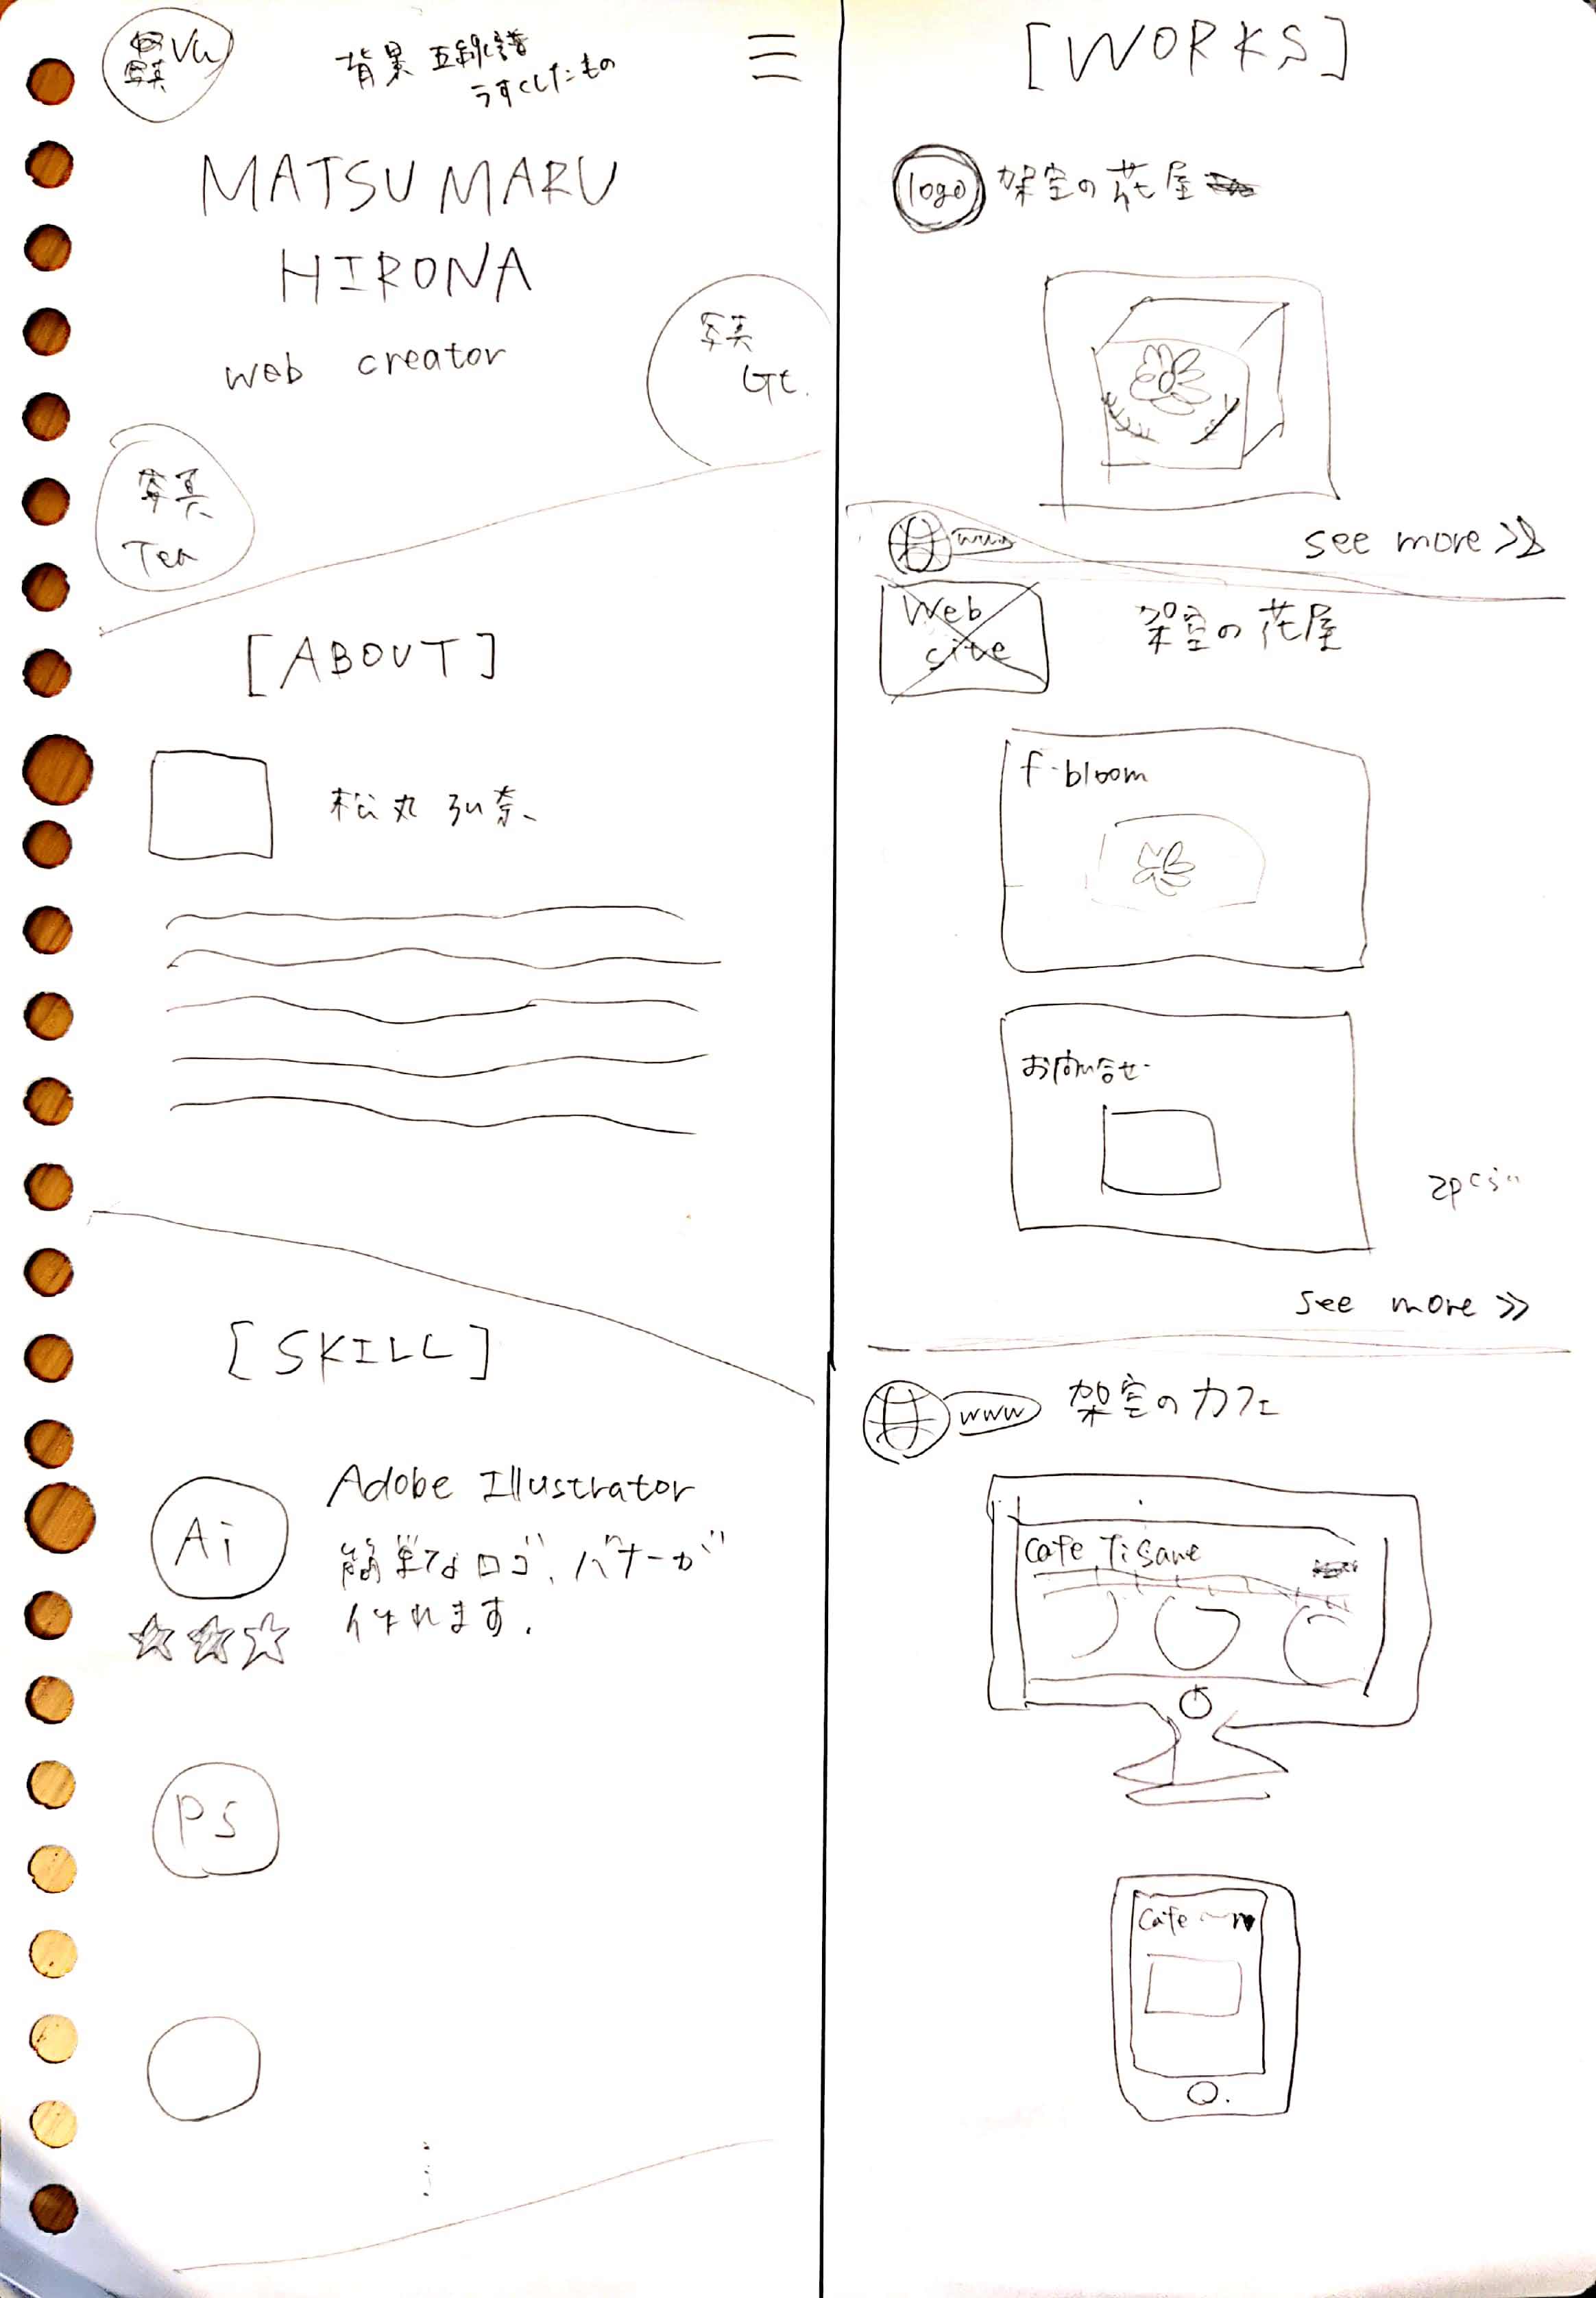 写真 Vn
背景 五線譜
うすくしたもの
MATSUMARU
HIRONA
web creator
写真
Gt.
写真
Tea
[ABOUT]
松丸 弘奈
[SKILL]
Ai
Adobe Illustrator
簡単なロゴ、バナーが
作れます.
Ps
[WORKS]
logo 架空の花屋
see more >>
www
Web
site
架空の花屋
f-bloom
お問い合せ
see more >>
www 架空のカフェ
Cafe Tisane
Cafe